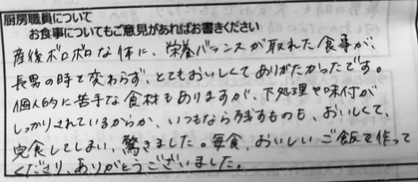 厨房職員について
お食事についてもご意見があればお書きください
産後ボロボロな体に、栄養バランスが取れた食事が、
長男の時と変わらず、とてもおいしくてありがたかったです。
個人的に苦手な食材もありますが、下処理や味付が
しっかりされているからか、いつもなら残すものも、おいしくて、
完食してしまい、驚きました。毎食、おいしいご飯を作って
くださり、ありがとうございました。